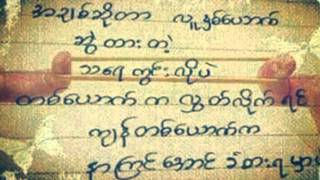 အချစ်ဆိုတာ လူနှစ်ယောက်
ဆွဲထားတဲ့
သရေကွင်းလိုပဲ
တစ်ယောက်က လွှတ်လိုက်ရင်
ကျန်တစ်ယောက်က
နာကြင်အောင် ခံစားရမှာ